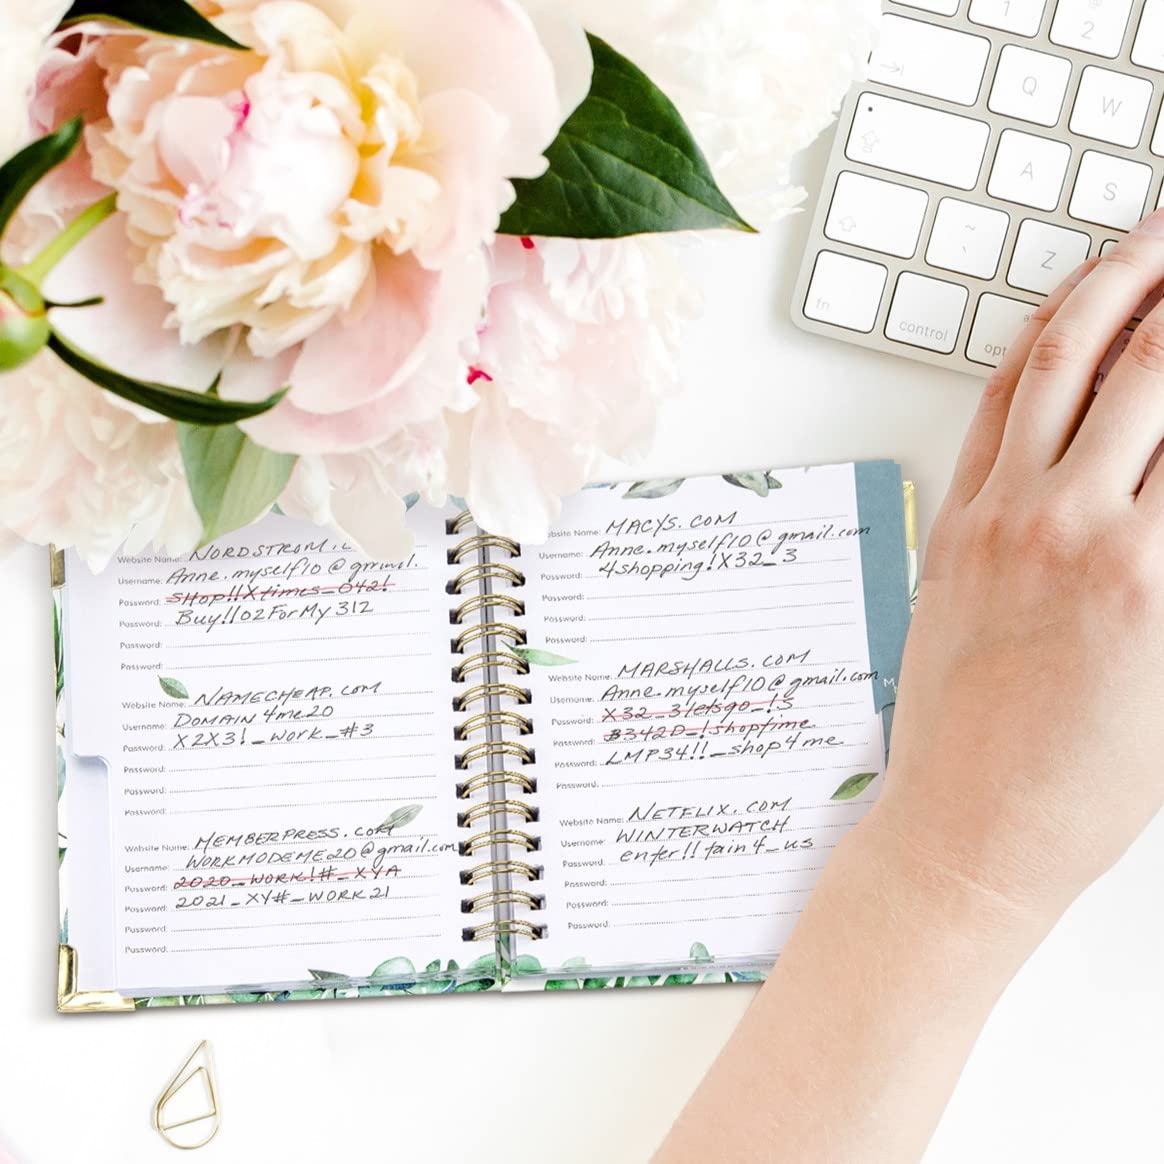 Website Name: NORDSTROM.
Username: Anne.myself10@gmail.
Password: SHop!!Xtimes_042!
Password: Buy!!02ForMy312
Password:
Password:
Website Name: NAMECHEAP.COM
Username: DOMAIN4me20
Password: X2X3!_work_#3
Password:
Password:
Password:
Website Name: MEMBERPRESS.COM
Username: WORKMODEME20@gmail.com
Password: 2020_WORK!#_XYA
Password: 2021_XY#_WORK21
Password:
Password:
Website Name: MACYS.COM
Username: Anne.myself10@gmail.com
Password: 4shopping!X32_3
Password:
Password:
Password:
Website Name: MARSHALLS.COM
Username: Anne.myself10@gmail.com
Password: X32_3letsgo_!S
Password: B342D_!shoptime
Password: LMP34!!_shop4me
Password:
Website Name: NETFLIX.COM
Username: WINTERWATCH
Password: enter!!tain4_us
Password:
Password:
Password:
M
1
@
2
Q
W
A
S
~
`
Z
fn
control